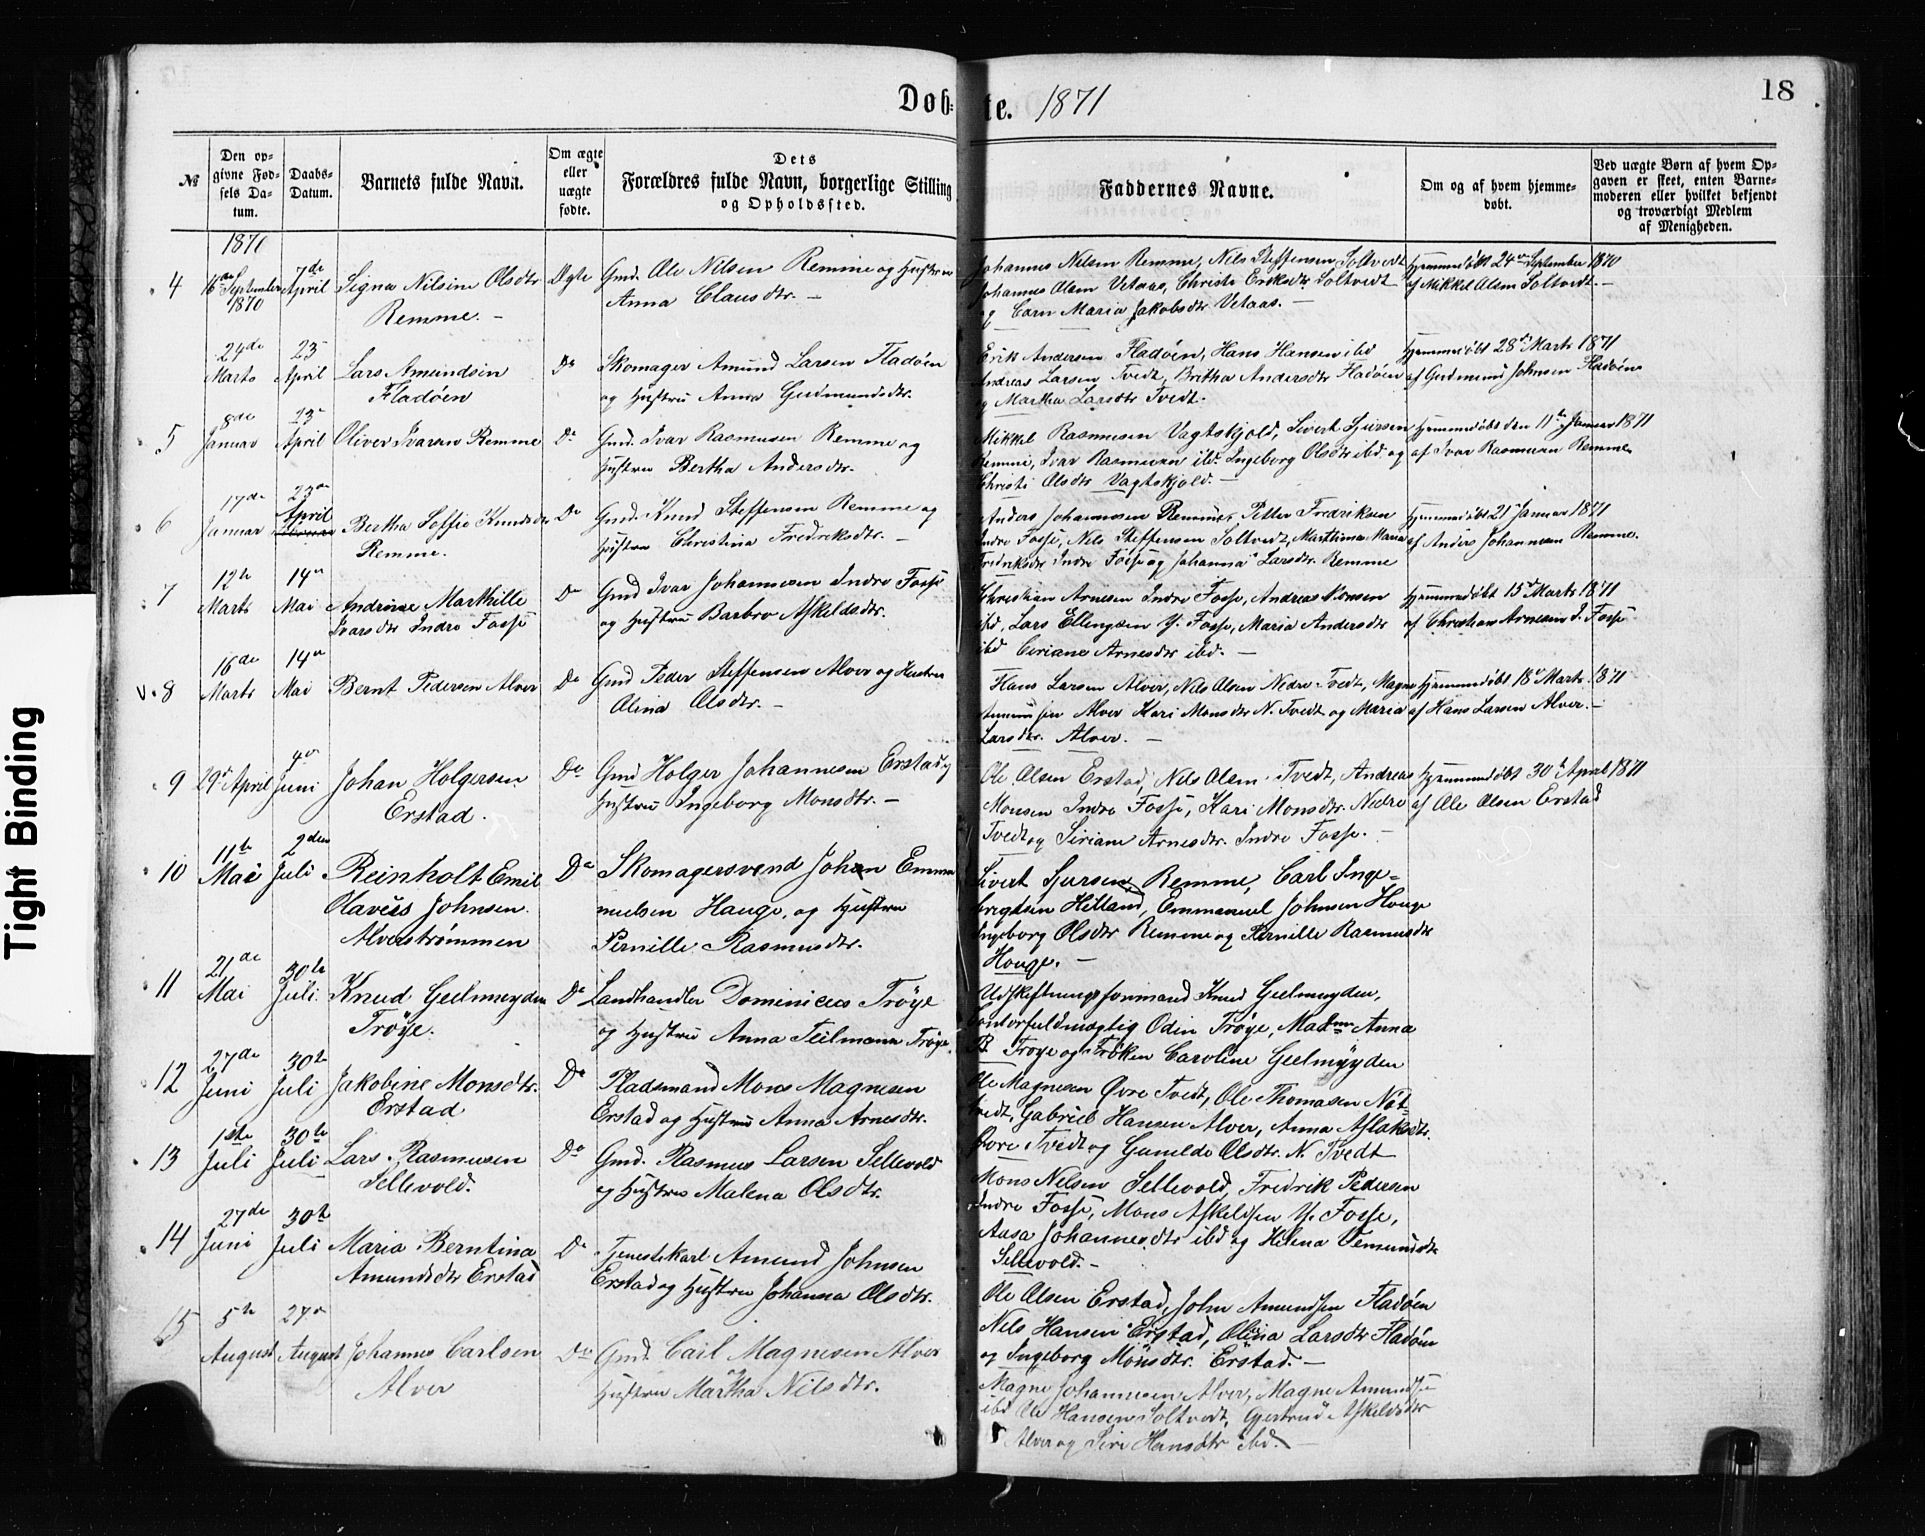 18
Døb-
te. 1871
№
Den op-
givne Fød-
sels Da-
tum.
Daabs-
Datum.
Barnets fulde Navn.
Om ægte
eller
uægte
fødte.
Dets
Forældres fulde Navn, borgerlige Stilling
og Opholdssted.
Faddernes Navne.
Om og af hvem hjemme-
døbt.
Ved uægte Børn af hvem Op-
gaven er skeet, enten Barne-
moderen eller hvilket bekjendt
og troværdigt Medlem
af Menigheden.
1870
4
September
1870
7de
April
Signa Nilsine Olsdtr
Remme. -
Ægte
Gmd. Ole Nilsen Remme og Hustru
Anna Clausdtr. -
Johannes Nilsen Remme, Nils Steffensen Soltvedt
Johannes Olsen Vetaas, Christi Eriksdtr Soltvedt
og Carn Maria Jakobsdtr Vetaas. -
Hjemmedøbt 24 September 1870
af Mikkel Olsen Soltvedt. -
24de
Marts
23
April
Lars Amundsen
Fladøen
Do
Skomager Amund Larsen Fladøen
og Hustru Anna Gudmundsdtr.
Erik Andersen Fladøen, Hans Hansen ibd
Andreas Larsen Tvedt, Britha Andersdtr Fladøen
og Martha Larsdtr Tvedt.
Hjemmedøbt 28de Marts 1871
af Gudmund Johnsen Fladøen
5
8de
Januar
23
April
Oliver Ivarsen Remme
Do
Gmd. Ivar Rasmusen Remme og
Hustru Bertha Andersdtr.
Mikkel Rasmusen Vagtskjold, Sivert Sjursen
Remme, Ivar Rasmusen ibd. Ingeborg Olsdtr ibd og
Christi Olsdtr Vagtskjold. -
Hjemmedøbt den 11te Januar 1871
af Ivar Rasmusen Remme
6
17de
Januar
23
April
Bertha Sofie Knudsdtr
Remme.
Do
Gmd. Knud Steffensen Remme og
Hustru Christina Fredriksdtr. -
Anders Johannesen Remme, Petter Fredriksen
Indre Fosse, Nils Steffensen Soltvedt, Marthina Maria
Fredriksdtr Indre Fosse og Johanna Larsdtr. Remme
Hjemmedøbt 21 Januar 1871
af Anders Johannesen Remme.
7
12te
Marts
14
Mai
Andrine Marthille
Ivarsdtr Indre Fosse
Do
Gmd Ivar Johannesen Indre Fosse
og Hustru Barbro Askeldsdtr.
Christian Arnesen Indre Fosse, Andreas Monsen
ibd, Lars Ellingsen Y. Fosse, Maria Andersdtr
ibd Ceriane Arnesdtr ibd. -
Hjemmedøbt 15d Marts 1871
af Christian Arnesen I. Fosse
v. 8
16de
Marts
14
Mai
Bernt Pedersen Alver
Do
Gmd Peder Steffensen Alver og Hustru
Olina Olsdtr. -
Hans Larsen Alver, Nils Olsen Nedre Tvedt, Magne
Amundsen Alver Kari Monsdtr N. Tvedt og Maria
Larsdtr. Alver. -
Hjemmedøbt 18de Marts 1871
af Hans Larsen Alver. -
9
29d April
4
Juni
Johan Holgersen
Erstad.
Do
Gmd Holger Johannesen Erstad og
Hustru Ingeborg Monsdtr. -
Ole Olsen Erstad, Nils Olsen Tvedt, Andreas
Monsen Indre Fosse, Kari Monsdtr. Nedre
Tvedt og Siriane Arnesdtr. Indre Fosse. -
Hjemmedøbt 30te April 1871
af Ole Olsen Erstad
10
11te
Mai
2den
Juli
Reinholt Emil
Olaves Johnsen
Alverstrømmen
Do
Skomagersvend Johan Emma-
nuelsen Hauge, og Hustru
Pernille Rasmusdtr.
Sivert Sjursen Remme, Carl Inge-
brigtsen Hilland, Emmanuel Johnsen Houge
Ingeborg Olsdtr Remme og Pernille Rasmusdtr
Houge. -
11
21de
Mai
30te
Juli.
Knud Geelmuyden
Trøye.
Do
Landhandler Dominicus Trøye
og Hustru Anna Teilmann Trøye.
Udskiftningsformand Knud Geelmuyden,
Contorfuldmægtig Odin Trøye, Madm Anna
B. Troye og Frøken Caroline Geelmuyden
12
27de
Juni
30te
Juli
Jakobine Monsdtr.
Erstad
Do
Pladsmand Mons Magnesen
Erstad og Hustru Anna Arnesdtr.
Ole Magnesen Øvre Tvedt, Ole Thomasen Nøt-
tvedt, Gabriel Hansen Alver, Anna Aslaksdtr.
Øvre Tvedt og Gunilde Olsdtr. N. Tvedt
13
1ste
Juli
30te
Juli
Lars Rasmusen
Sellevold.
Do
Gmd. Rasmus Larsen Sellevold
og Hustru Malena Olsdtr.
Mons Nelsen Sellevold, Fredrik Pedersen
Indre Fosse, Mons Askeldsen Y. Fosse,
Aasa Johannesdtr ibd og Helena Vemundsdtr
Sellevold. -
14
27de
Juni
30te
Juli
Maria Berntina
Amundsdtr Erstad
Do
Tjenestekarl Amund Johnsen
Erstad og Hustru Johanna Olsdtr.
Ole Olsen Erstad, John Amundsen Fladøen
Nils Hansen Erstad, Olina Larsdtr Fladøen
og Ingeborg Monsdtr. Erstad. -
15
5te
August
27
August
Johannes Carlsen
Alver
Do
Gmd. Carl Magnesen Alver
Hustru Martha Nilsdtr.
Magne Johannesen Alver, Magne Amundsen
ibd Ole Hansen Soltvedt, Gjertrud Askeldsdtr
Alver og Siri Hansdtr ibd. -
Tight Binding